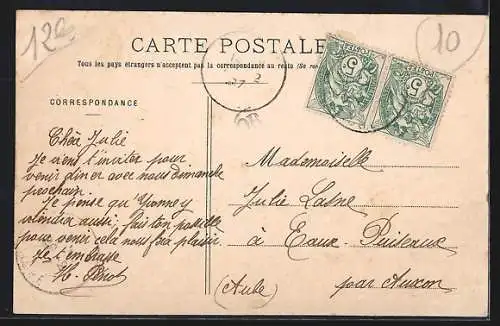 12e
10
CARTE POSTALE
Tous les pays étrangers n'acceptent pas la correspondance au recto (Se ren
CORRESPONDANCE
27 2
OR
5
POSTES
5
POSTES
Chère Julie
Je viens t'inviter pour
venir diner avec nous dimanche
prochain.
Je pense qu'Yonne y
viendra aussi. fais ton possible
pour venir cela nous fera plaisir.
Je t'embrasse
H.
Mademoiselle
Julie Lasne
à Eaux-Puiseaux
par Auxon
(Aube)